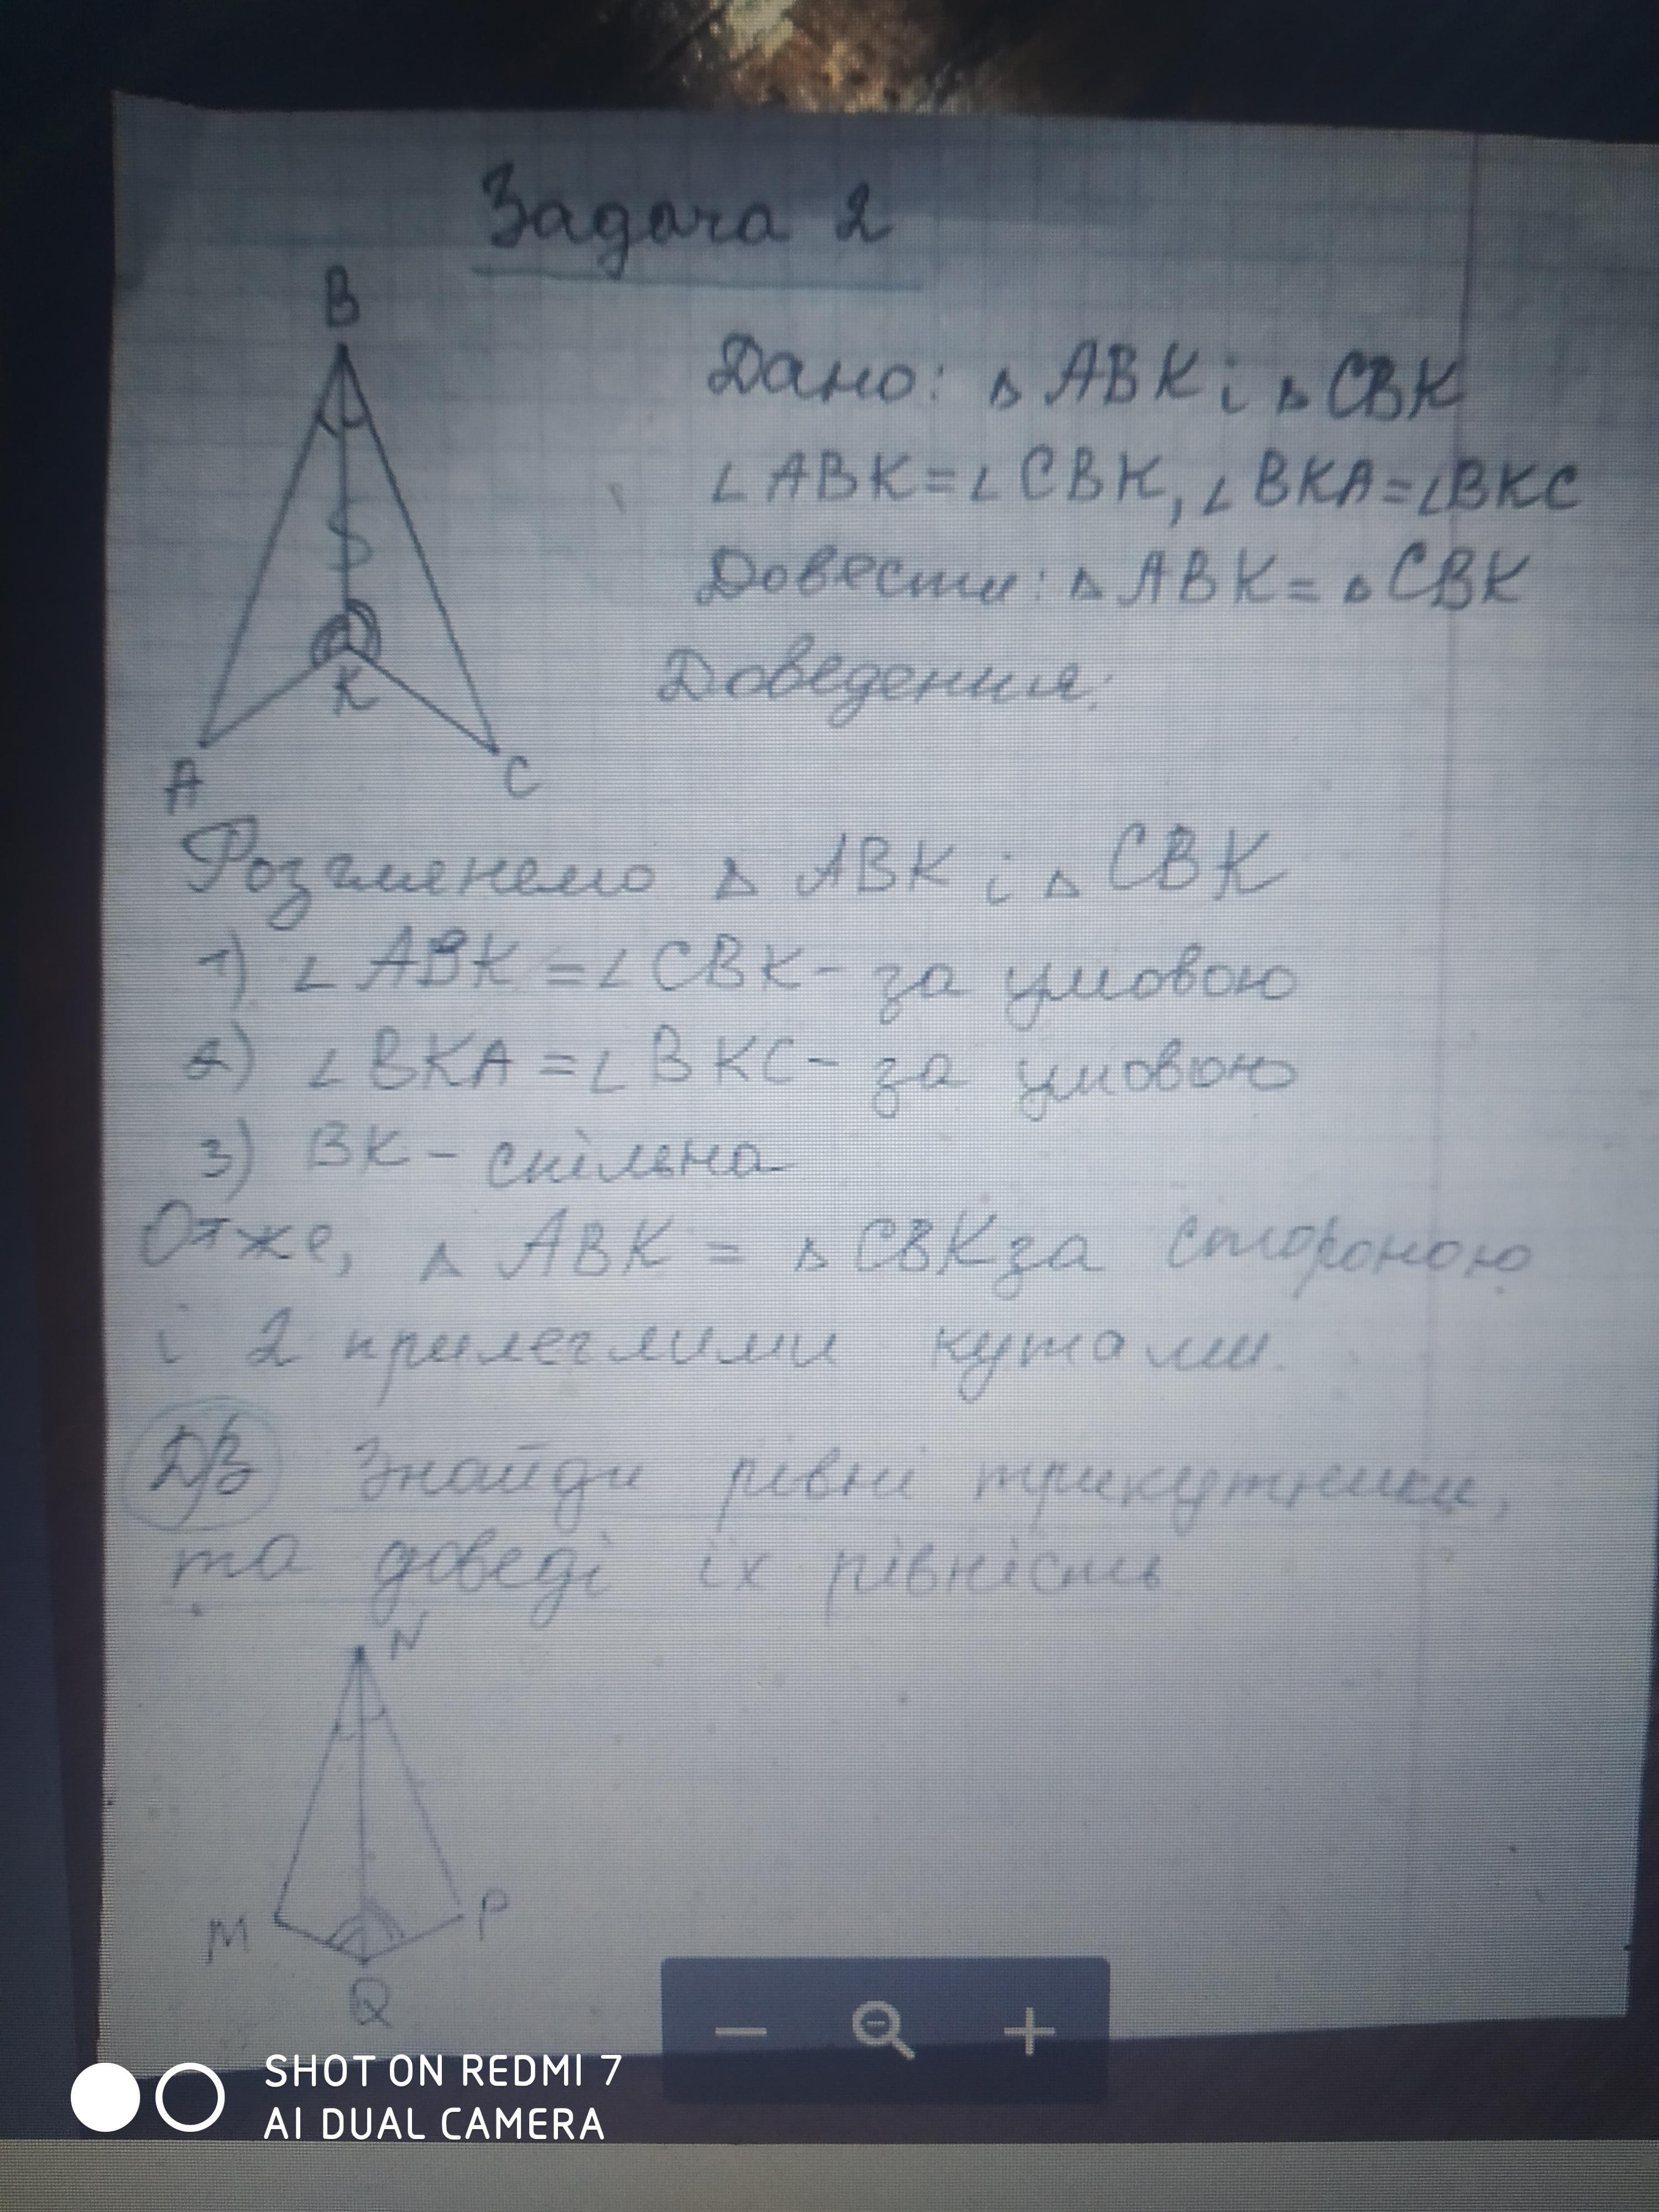 Задача 2
B
Дано: △ ABK і △ CBK
∠ ABK = ∠ CBK, ∠ BKA = ∠BKC
Довести: △ ABK = △ CBK
K
Доведення:
A
C
Розглянемо △ ABK і △ CBK
1) ∠ ABK = ∠ CBK - за умовою
2) ∠ BKA = ∠ BKC - за умовою
3) BK - спільна
Отже, △ ABK = △ CBK за стороною
і 2 прилеглими кутами.
Д/З Знайди рівні трикутники,
та доведі їх рівність
N
M
P
Q
SHOT ON REDMI 7
AI DUAL CAMERA